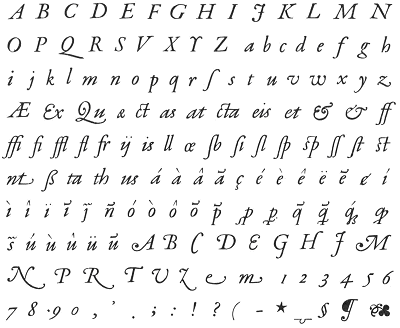 A B C D E F G H I J K L M N
O P Q R S V X Y Z a b c d e f g h
i j k l m n o p q r ſ s t u v w x y z
Æ Ex Qu & ct as at cta eis et & & ff
ffi fi ffl fl fr ij is ll œ ſb ſi ſl ſp sp ſſ ſt st
nt ß ta th us á à â ã ç é è ê ë ẽ í
ì î ï ĩ j̃ ñ ó ò ô õ p̃ q̃
s̃ ú ù û ü ũ A B C D E G H J M
N P R R T U Z e m 1 2 3 4 5 6
7 8 9 0 , ' . ; : ! ? ( - ★ § ¶ ❧